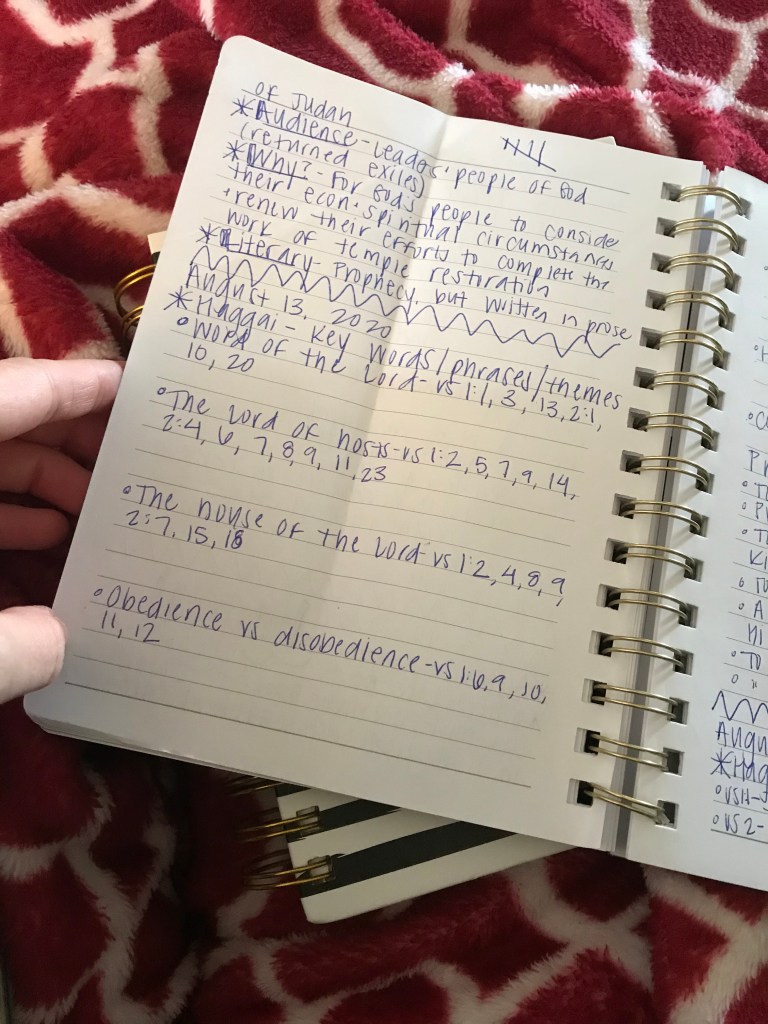 of Judah
*Audience - Leaders, people of God
(returned exiles)
*Why? - For God's people to conside
their econ. spiritual circumstances
+ renew their efforts to complete the
work of temple restoration
*Literary - Prophecy, but written in prose
August 13, 2020
*Haggai - Key words/phrases/themes
• Word of the Lord - vs 1:1, 3, 13, 2:1,
10, 20
• The Lord of hosts - vs 1:2, 5, 7, 9, 14,
2:4, 6, 7, 8, 9, 11, 23
• The house of the Lord - vs 1:2, 4, 8, 9,
2:7, 15, 18
• Obedience vs disobedience - vs 1:6, 9, 10,
11, 12
Augu
*Hag
• vs 1-
• vs 2-